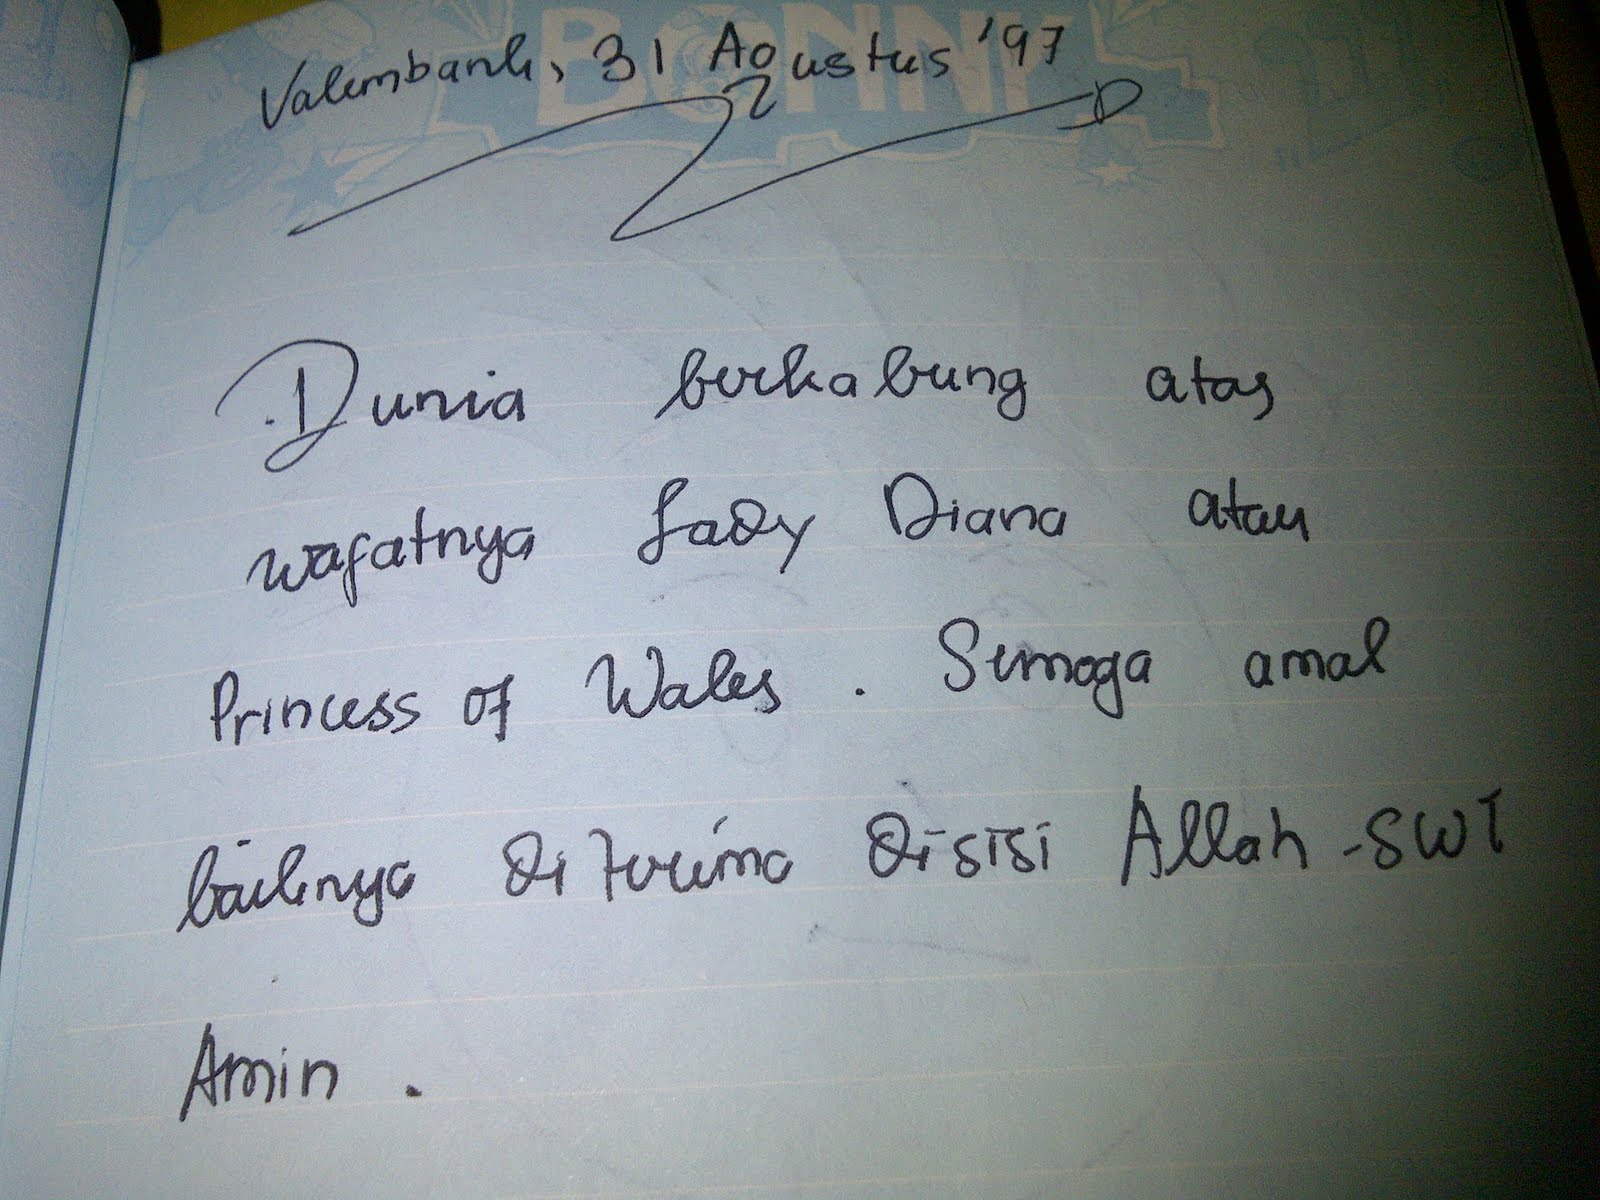 BONNY
Valembanh, 31 Agustus '97
Dunia berkabung atas
wafatnya Lady Diana atau
Princess of Wales. Semoga amal
baiknya diterima disisi Allah-SWT
Amin.